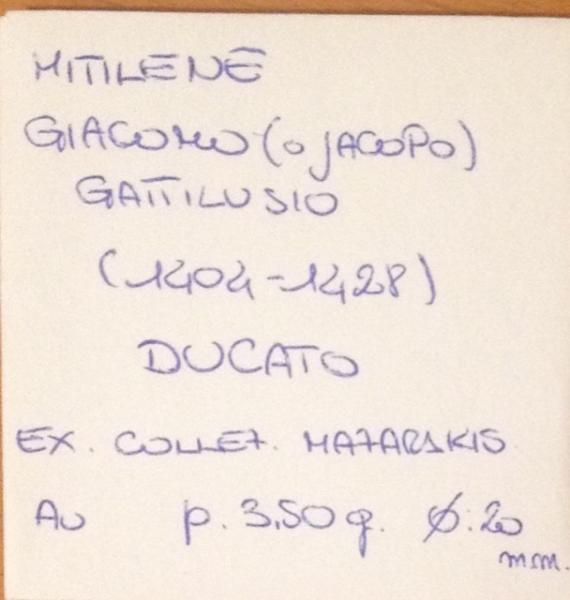 MITILENE
GIACOMO (o JACOPO)
GATTILUSIO
(1404-1428)
DUCATO
EX. COLLEZ. MAZARAKIS
AU p. 3,50 g. Ø. 20
mm.